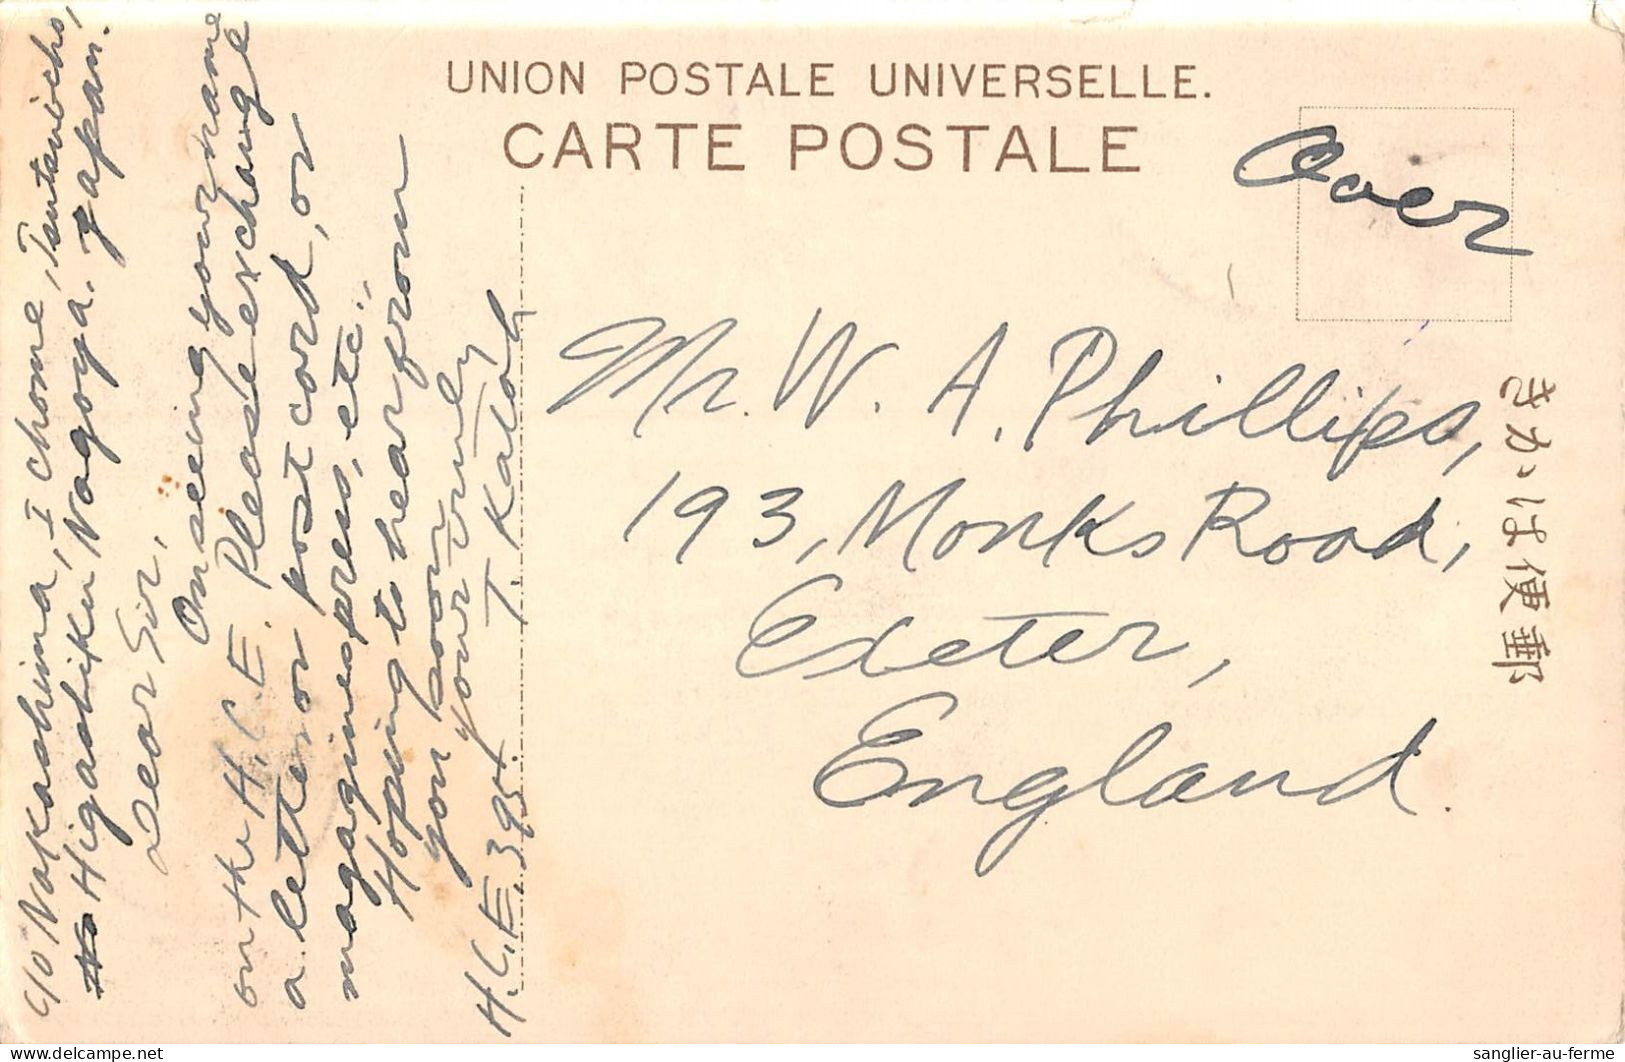 UNION POSTALE UNIVERSELLE.
CARTE POSTALE
Over
Mr. W. A. Phillips,
193, Monks Road,
Exeter,
England.
きかは便郵
c/o Nakashima, I chome, Tsutsuicho,
Higashiku Nagoya. Japan.
Dear Sir,
On seeing your name
on the H.C.E. Please exchange
a letter or post card, or
magagines press, etc.,
Hoping to hear from
you soon
your truly
T. Katoh
H.C.E. 395.
sanglier-au-ferme